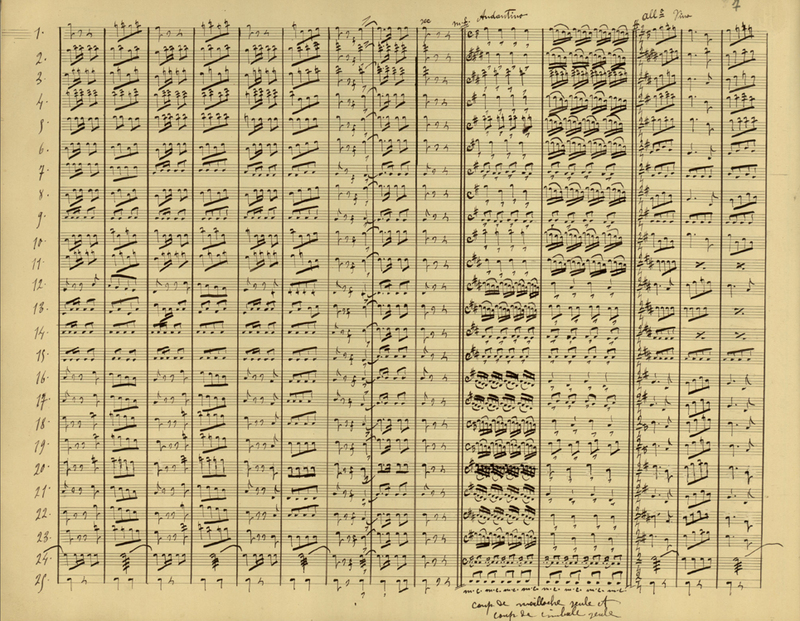 4
Andantino All? Vivo
1.
2.
3.
4.
5.
6.
7.
8.
9.
10.
11.
12.
13.
14.
15.
16.
17.
18.
19.
20.
21.
22.
23.
24.
25.
coup de mailloche seule et
coup de cimbale seule